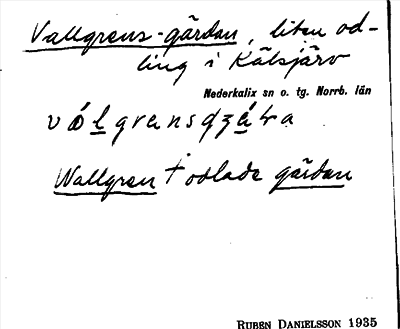 Vallgrens-gärdan, liten od-
ling i Kälsjärv
Nederkalix sn o. tg. Norrb. län
Wallgren † odlade gärdan
RUBEN DANIELSSON 1935